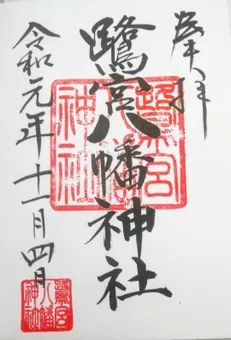 奉拝
鷺宮八幡神社
令和元年十一月四日
鷺宮
八幡
神社